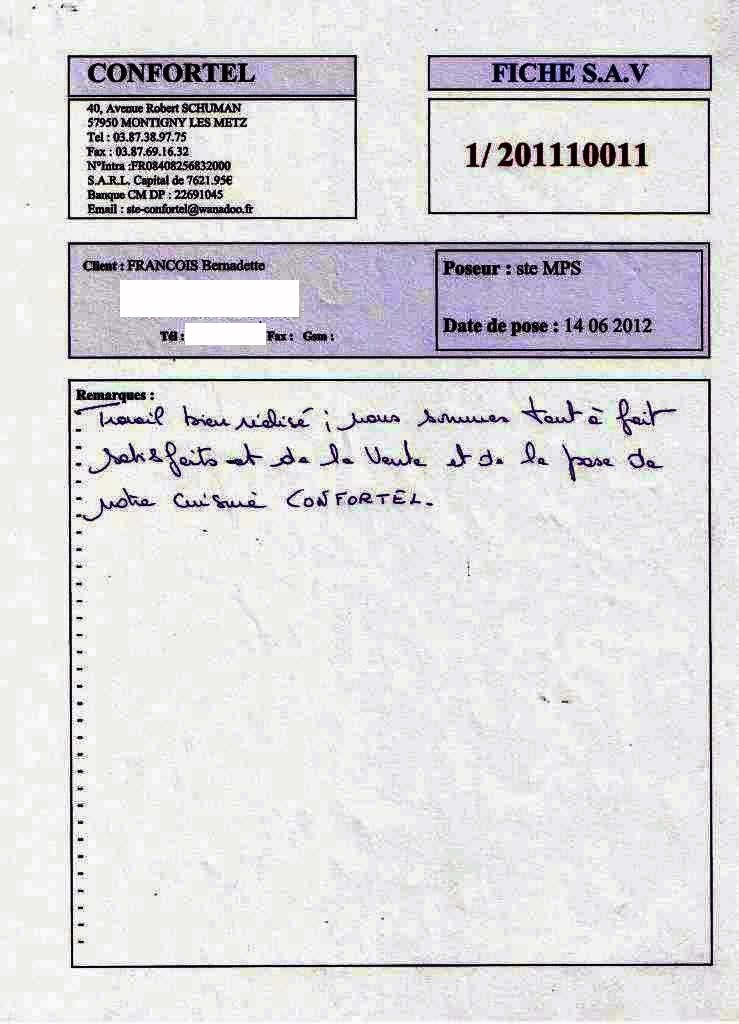 CONFORTEL
40, Avenue Robert SCHUMAN
57950 MONTIGNY LES METZ
Tel : 03.87.38.97.75
Fax : 03.87.69.16.32
N°Intra :FR08408256832000
S.A.R.L. Capital de 7621.95€
Banque CM DP : 22691045
Email : ste-confortel@wanadoo.fr
FICHE S.A.V
1/ 201110011
Client : FRANCOIS Bernadette
Tél : Fax : Gsm :
Poseur : ste MPS
Date de pose : 14 06 2012
Remarques :
- Travail bien réalisé ; nous sommes tout à fait
- satisfaits et de la Vente et de la pose de
- notre cuisine CONFORTEL.